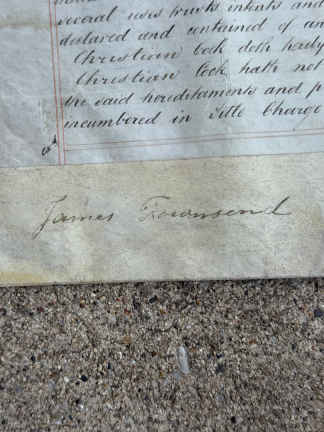 several uses trusts intents and
declared and contained of an
Christian Cock doth hereby
Christian Cock hath not
the said hereditaments and p
incumbered in Title Charge
James Townsend